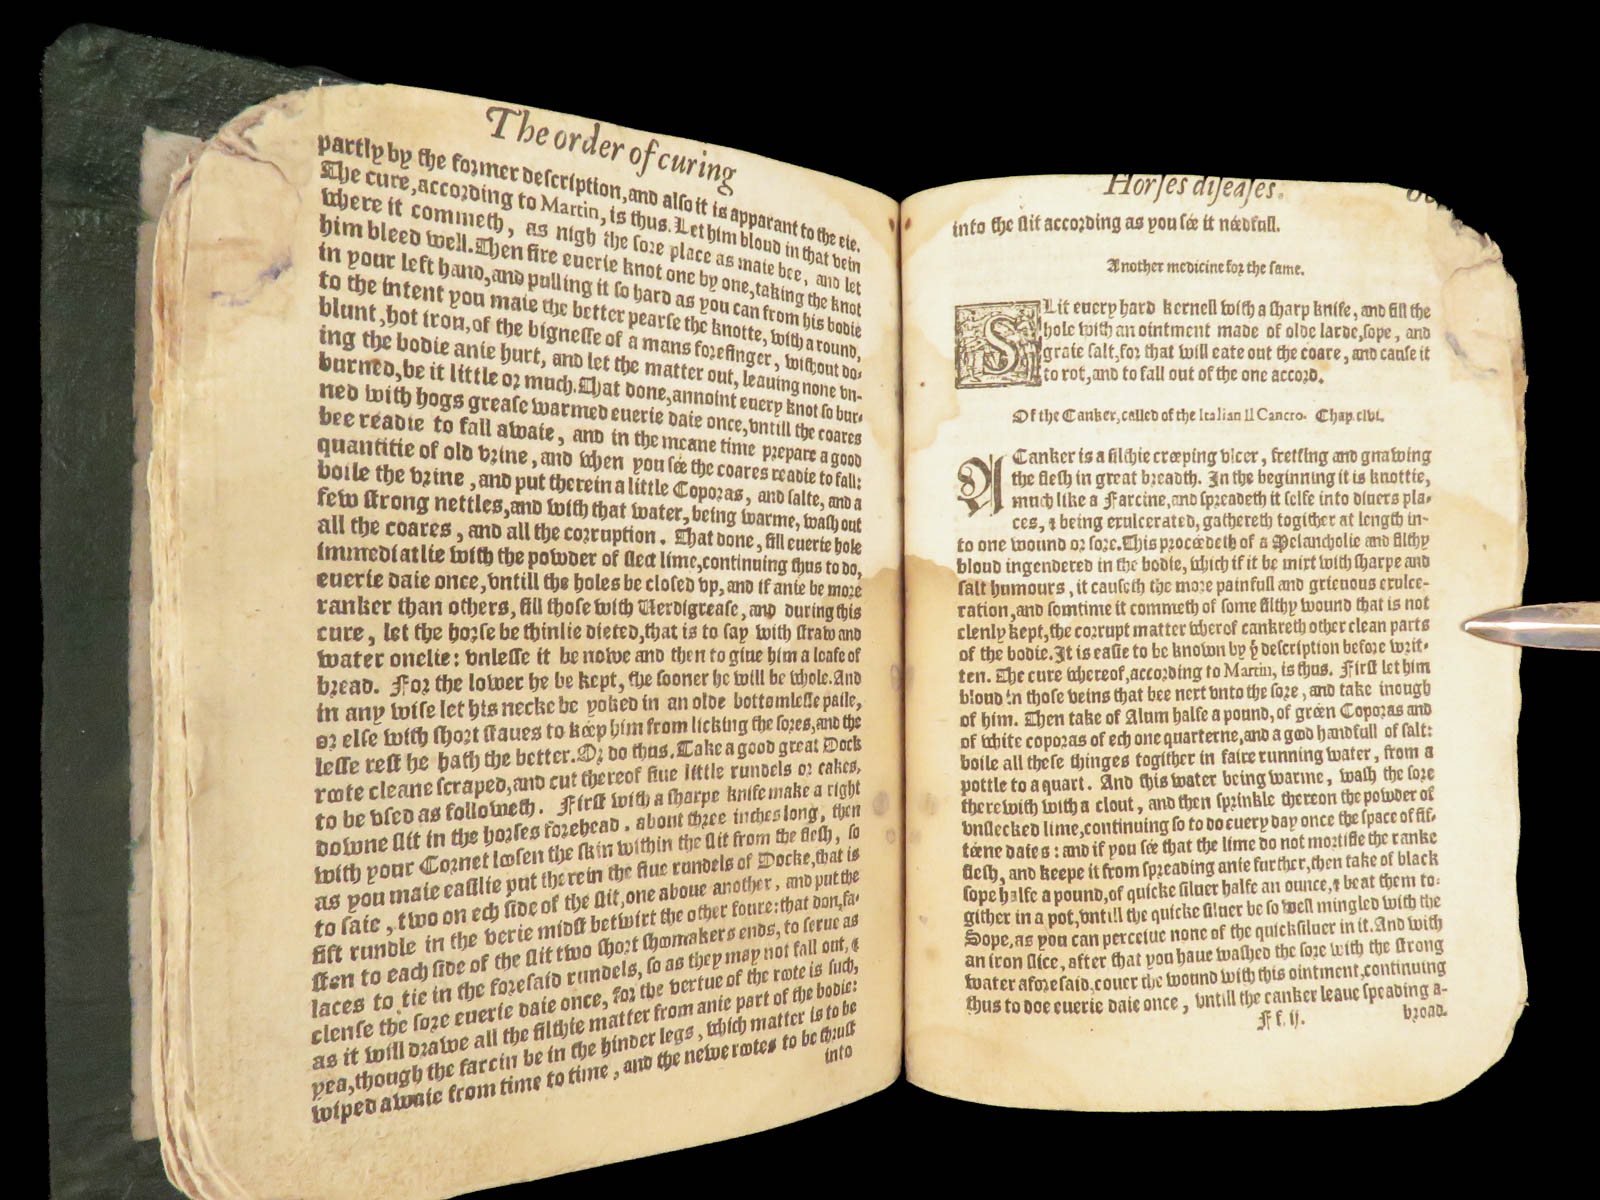 The order of curing
partly by the former description, and also it is apparant to the eie.
The cure, according to Martin, is thus. Let him bloud in that vein
where it commeth, as nigh the sore place as maie bee, and let
him bleed well. Then fire euerie knot one by one, taking the knot
in your left hand, and pulling it so hard as you can from his bodie
to the intent you maie the better pearse the knotte, with a round,
blunt, hot iron, of the bignesse of a mans forefinger, without do-
ing the bodie anie hurt, and let the matter out, leauing none vn-
burned, be it little or much. That done, annoint euery knot so bur-
ned with hogs grease warmed euerie daie once, vntill the coares
bee readie to fall awaie, and in the meane time prepare a good
quantitie of old vrine, and when you sée the coares readie to fall:
boile the vrine, and put therein a little Coporas, and salte, and a
few strong nettles, and with that water, being warme, wash out
all the coares, and all the corruption. That done, fill euerie hole
immediatlie with the powder of slect lime, continuing thus to do,
euerie daie once, vntill the holes be closed vp, and if anie be more
ranker than others, fill those with Uerdigrease, and during this
cure, let the horse be thinlie dieted, that is to say with straw and
water onelie: vnlesse it be nowe and then to giue him a loafe of
bread. For the lower he be kept, the sooner he will be whole. And
in any wise let his necke be yoked in an olde bottomlesse paile,
or else with short staues to kéep him from licking the sores, and the
lesse rest he hath the better. Or do thus. Take a good great Dock
roote cleane scraped, and cut thereof fiue little rundels or cakes,
to be vsed as followeth. First with a sharpe knife make a right
downe slit in the horses forehead, about thrée inches long, then
with your Cornet loosen the skin within the slit from the flesh, so
as you maie easilie put therein the fiue rundels of Docke, that is
to saie, two on ech side of the slit, one aboue another, and put the
fift rundle in the verie midst betwixt the other foure: that don, fa-
sten to each side of the slit two short shoomakers ends, to serue as
laces to tie in the foresaid rundels, so as they may not fall out, &
clense the sore euerie daie once, for the vertue of the roote is such,
as it will drawe all the filthie matter from anie part of the bodie:
yea, though the farcin be in the hinder legs, which matter is to be
wiped awaie from time to time, and the newe rootes to be thrust
into
Horses diseases.
into the slit according as you sée it néedfull.
Another medicine for the same.
SLit euery hard kernell with a sharp knife, and fill the
hole with an ointment made of olde larde, sope, and
graie salt, for that will eate out the coare, and cause it
to rot, and to fall out of the one accord.
Of the Canker, called of the Italian Il Cancro. Chap. clvi.
A Canker is a filthie creeping vlcer, fretting and gnawing
the flesh in great breadth. In the beginning it is knottie,
much like a Farcine, and spreadeth it selfe into diuers pla-
ces, & being exulcerated, gathereth togither at length in-
to one wound or sore. This procéedeth of a Melancholie and filthy
bloud ingendered in the bodie, which if it be mixt with sharpe and
salt humours, it causeth the more painfull and grieuous exulce-
ration, and somtime it commeth of some filthy wound that is not
clenly kept, the corrupt matter wherof cankreth other clean parts
of the bodie. It is easie to be known by ye description before writ-
ten. The cure whereof, according to Martin, is thus. First let him
bloud in those veins that bee next vnto the sore, and take inough
of him. Then take of Alum halfe a pound, of gréen Coporas and
of white coporas of ech one quarterne, and a good handfull of salt:
boile all these thinges togither in faire running water, from a
pottle to a quart. And this water being warme, wash the sore
therewith with a clout, and then sprinkle thereon the powder of
vnslecked lime, continuing so to do euery day once the space of fif-
téene daies: and if you sée that the lime do not mortifie the ranke
flesh, and keepe it from spreading anie further, then take of black
sope halfe a pound, of quicke siluer halfe an ounce, & beat them to-
gither in a pot, vntill the quicke siluer be so well mingled with the
Sope, as you can perceiue none of the quicksiluer in it. And with
an iron slice, after that you haue washed the sore with the strong
water aforesaid, couer the wound with this ointment, continuing
thus to doe euerie daie once, vntill the canker leaue speading a-
Ff. ij. broad.